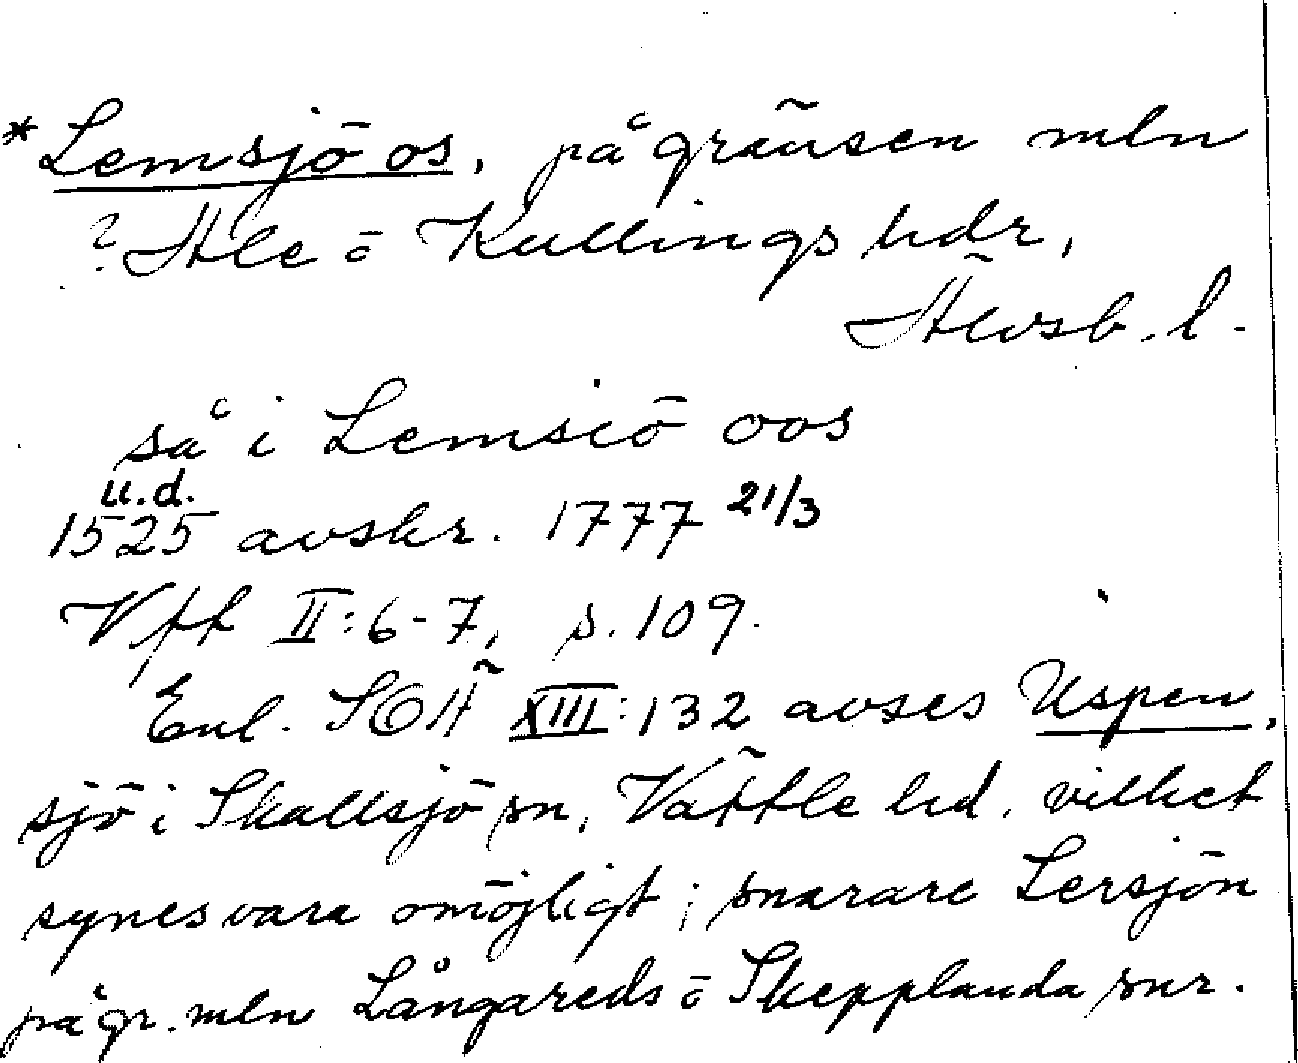 *Lemsjö os, på gränsen mln
? Ale o Kullings hdr,
Älvsb. l.
så i Lemsiö oos
u.d.
1525 avskr. 1777 21/3
Vff II:6-7, s. 109.
Enl. SOÄ XIII:132 avses Uspen,
sjö i Skallsjö sn, Vättle hd, vilket
synes vara omöjligt; snarare Lersjön
på gr. mln Långareds o Skepplanda snr.